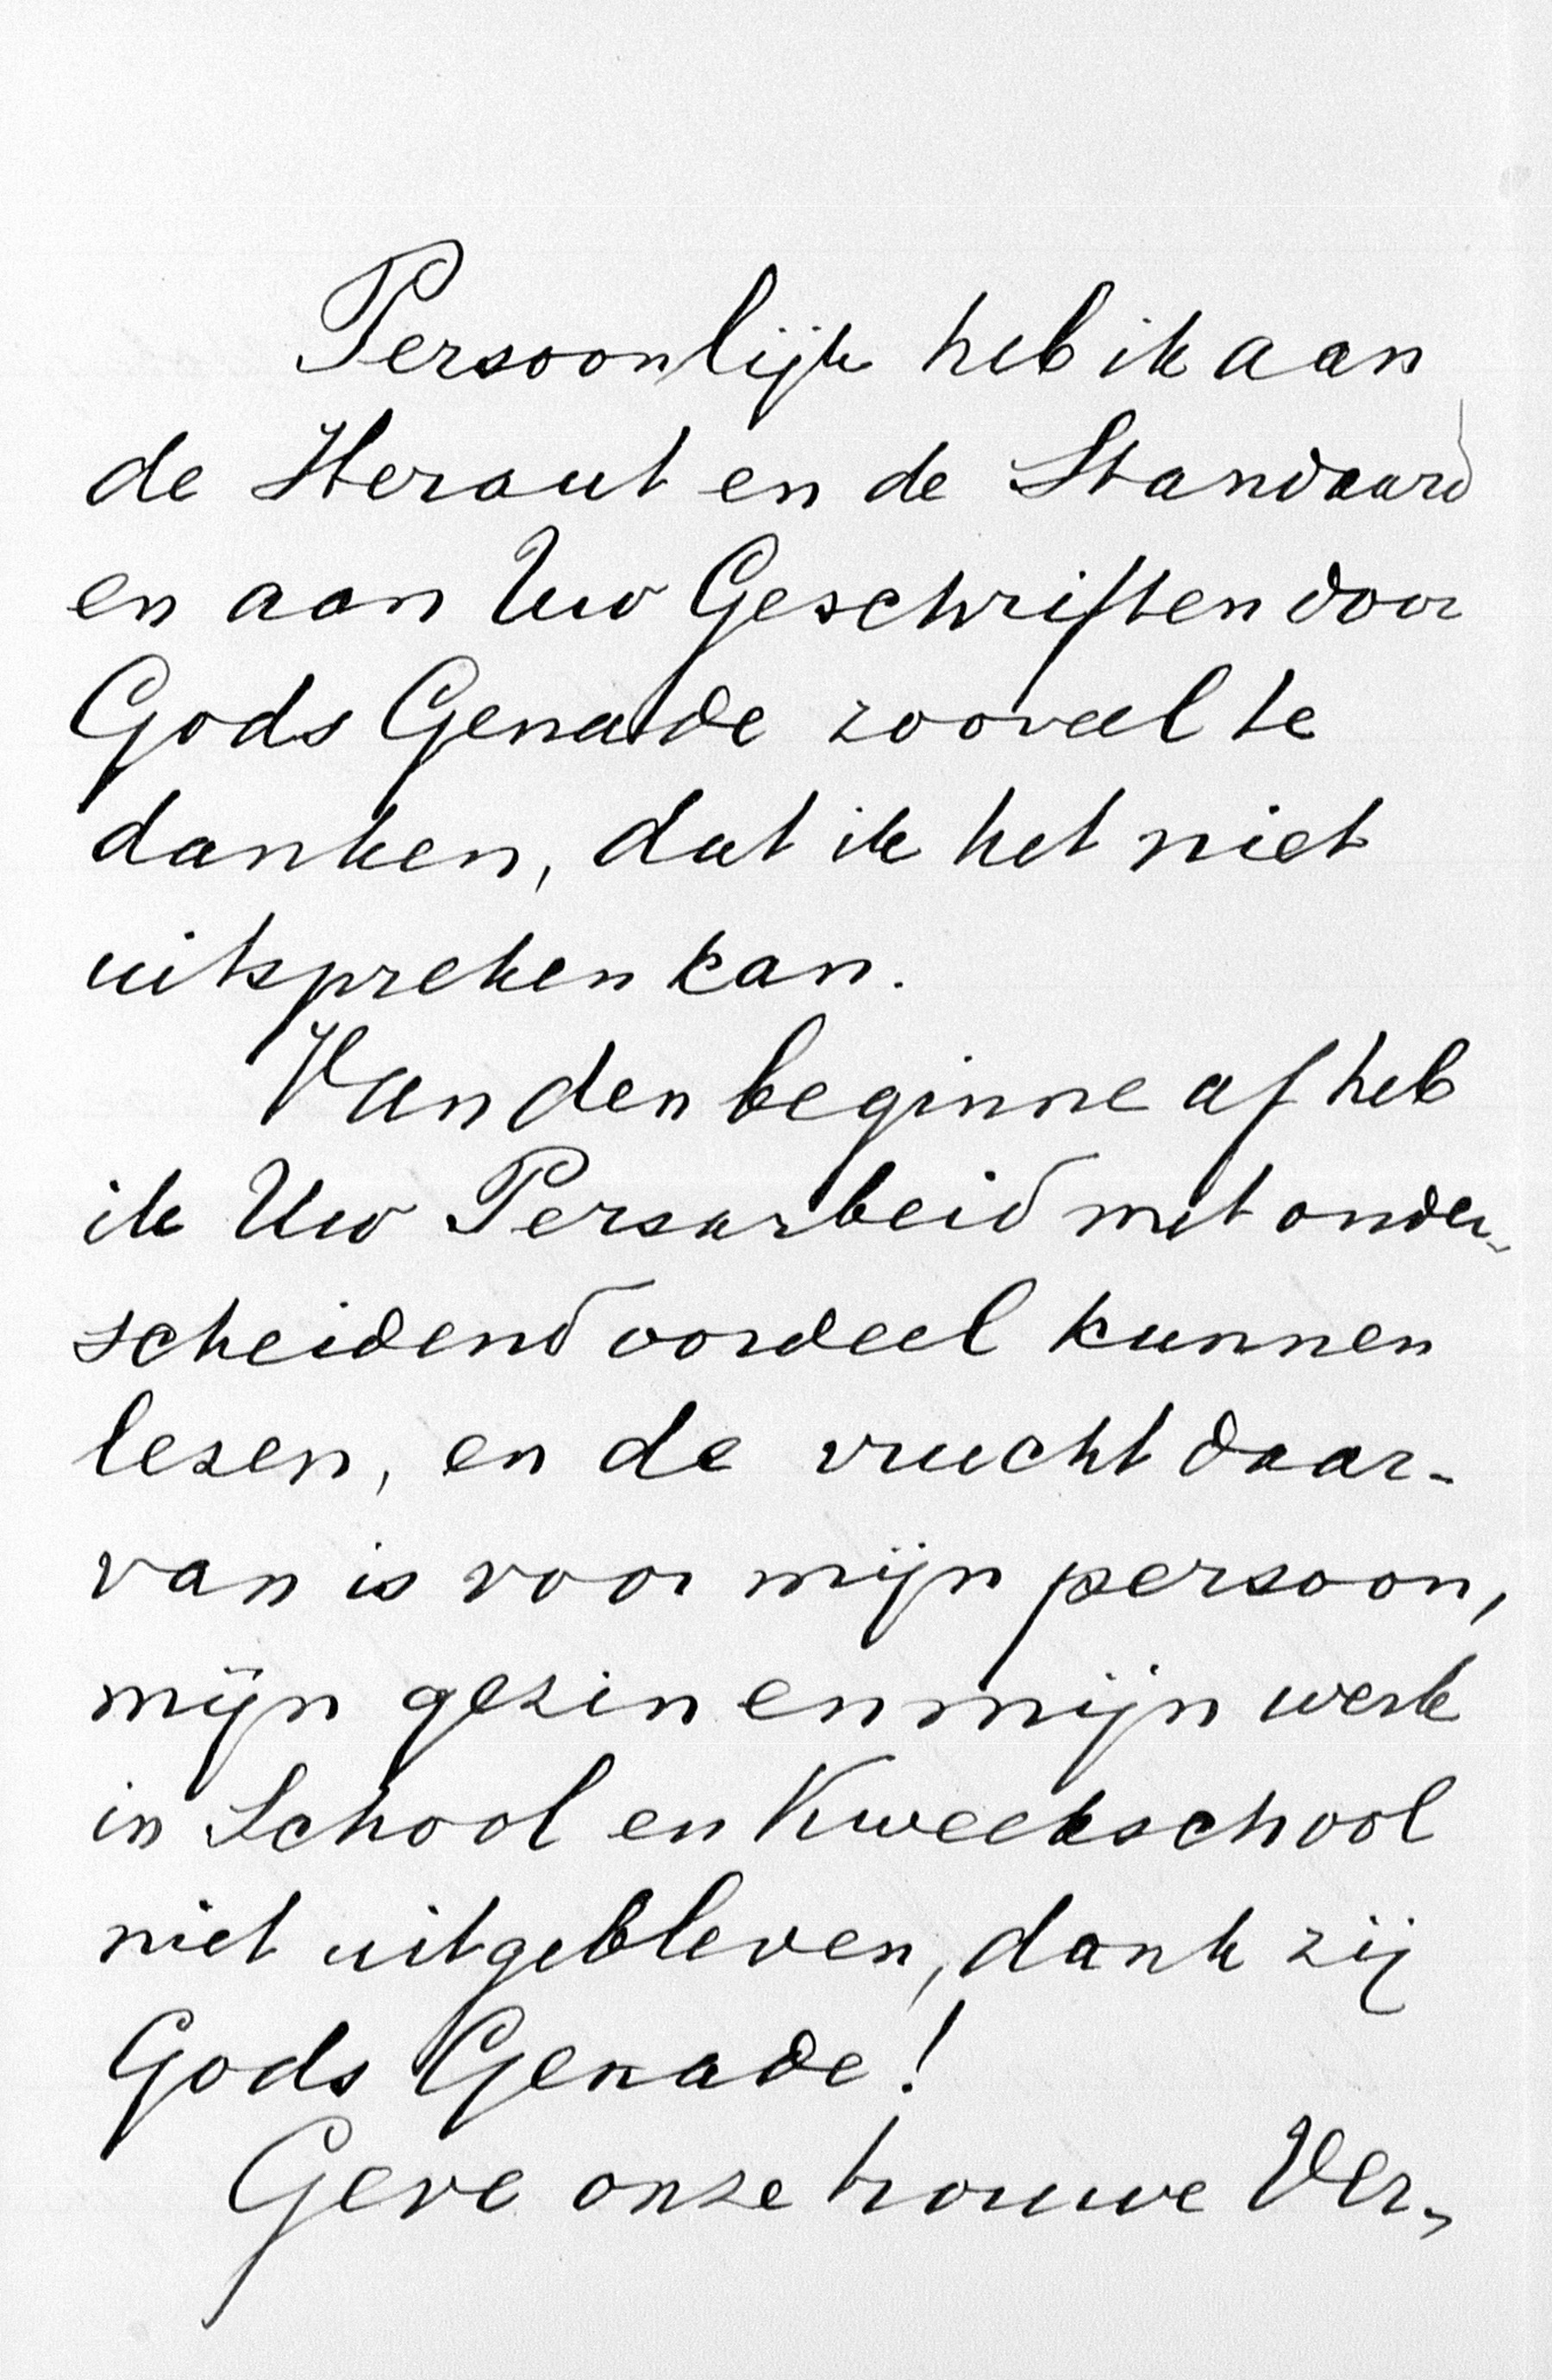 Persoonlijk heb ik aan
de Heraut en de Standaard
en aan Uw Geschriften door
Gods Genade zooveel te
danken, dat ik het niet
uitspreken kan.
Van den beginne af heb
ik Uw Persarbeid met onder-
scheidend oordeel kunnen
lezen, en de vrucht daar-
van is voor mijn persoon,
mijn gezin en mijn werk
in School en Kweekschool
niet uitgebleven, dank zij
Gods Genade!
Geve onze trouwe Ver-